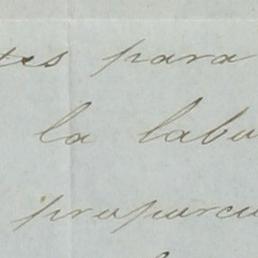 para
la labo
proporcio